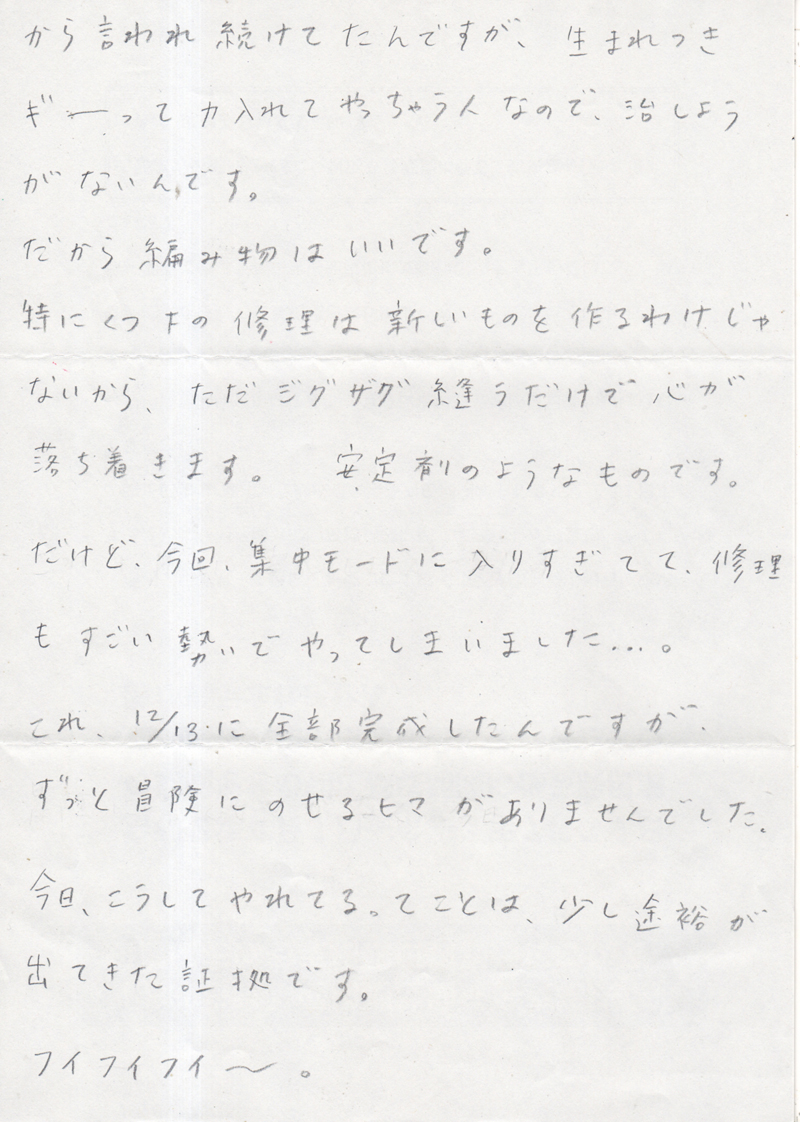 から言われ続けてたんですが、生まれつき
ギーって力入れてやっちゃう人なので、治しよう
がないんです。
だから編み物はいいです。
特にくつ下の修理は新しいものを作るわけじゃ
ないから、ただジグザグ縫うだけで心が
落ち着きます。 安定剤のようなものです。
だけど、今回、集中モードに入りすぎてて、修理
もすごい勢いでやってしまいました...。
これ、12/13に全部完成したんですが、
ずっと冒険にのせるヒマがありませんでした。
今日、こうしてやれてるってことは、少し途裕が
出てきた証拠です。
フイフイフイ〜。